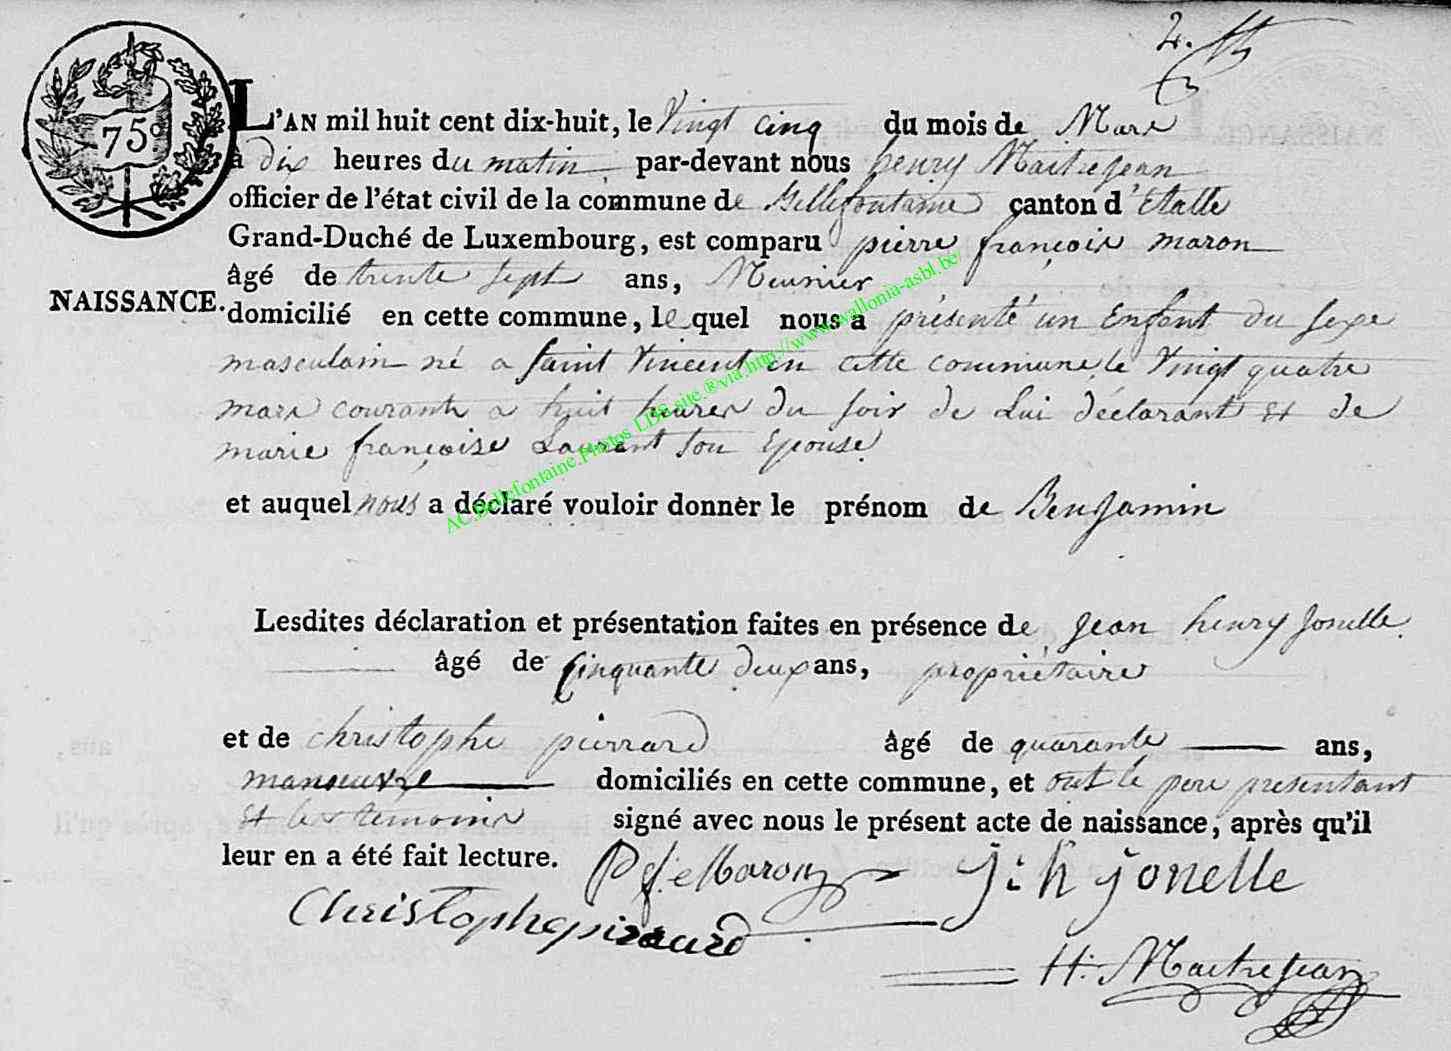 2.
75c
L'AN mil huit cent dix-huit, le Vingt cinq du mois de Mars
à dix heures du matin, par-devant nous henry Maitrejean
officier de l'état civil de la commune de Bellefontaine canton d'Etalle
Grand-Duché de Luxembourg, est comparu pierre françois maron
âgé de trente sept ans, Meunier
NAISSANCE. domicilié en cette commune, lequel nous a présenté un Enfant du sexe
masculain né a Saint Vincent en cette commune le Vingt quatre
mars courant a huit heures du soir de Lui déclarant et de
marie françoise Laurent son Epouse
et auquel nous a déclaré vouloir donner le prénom de Benjamin
AC.Bellefontaine.Photos LDS site ®via.http://www.wallonia-asbl.be/
Lesdites déclaration et présentation faites en présence de jean henry jonelle
âgé de Cinquante deux ans, propriétaire
et de christophe pierrard âgé de quarante ans,
manoeuvre domiciliés en cette commune, et ont le pere presentant
et les temoins signé avec nous le présent acte de naissance, après qu'il
leur en a été fait lecture. P f Maron j: h jonelle
Christophe pierard
H: Maitrejean